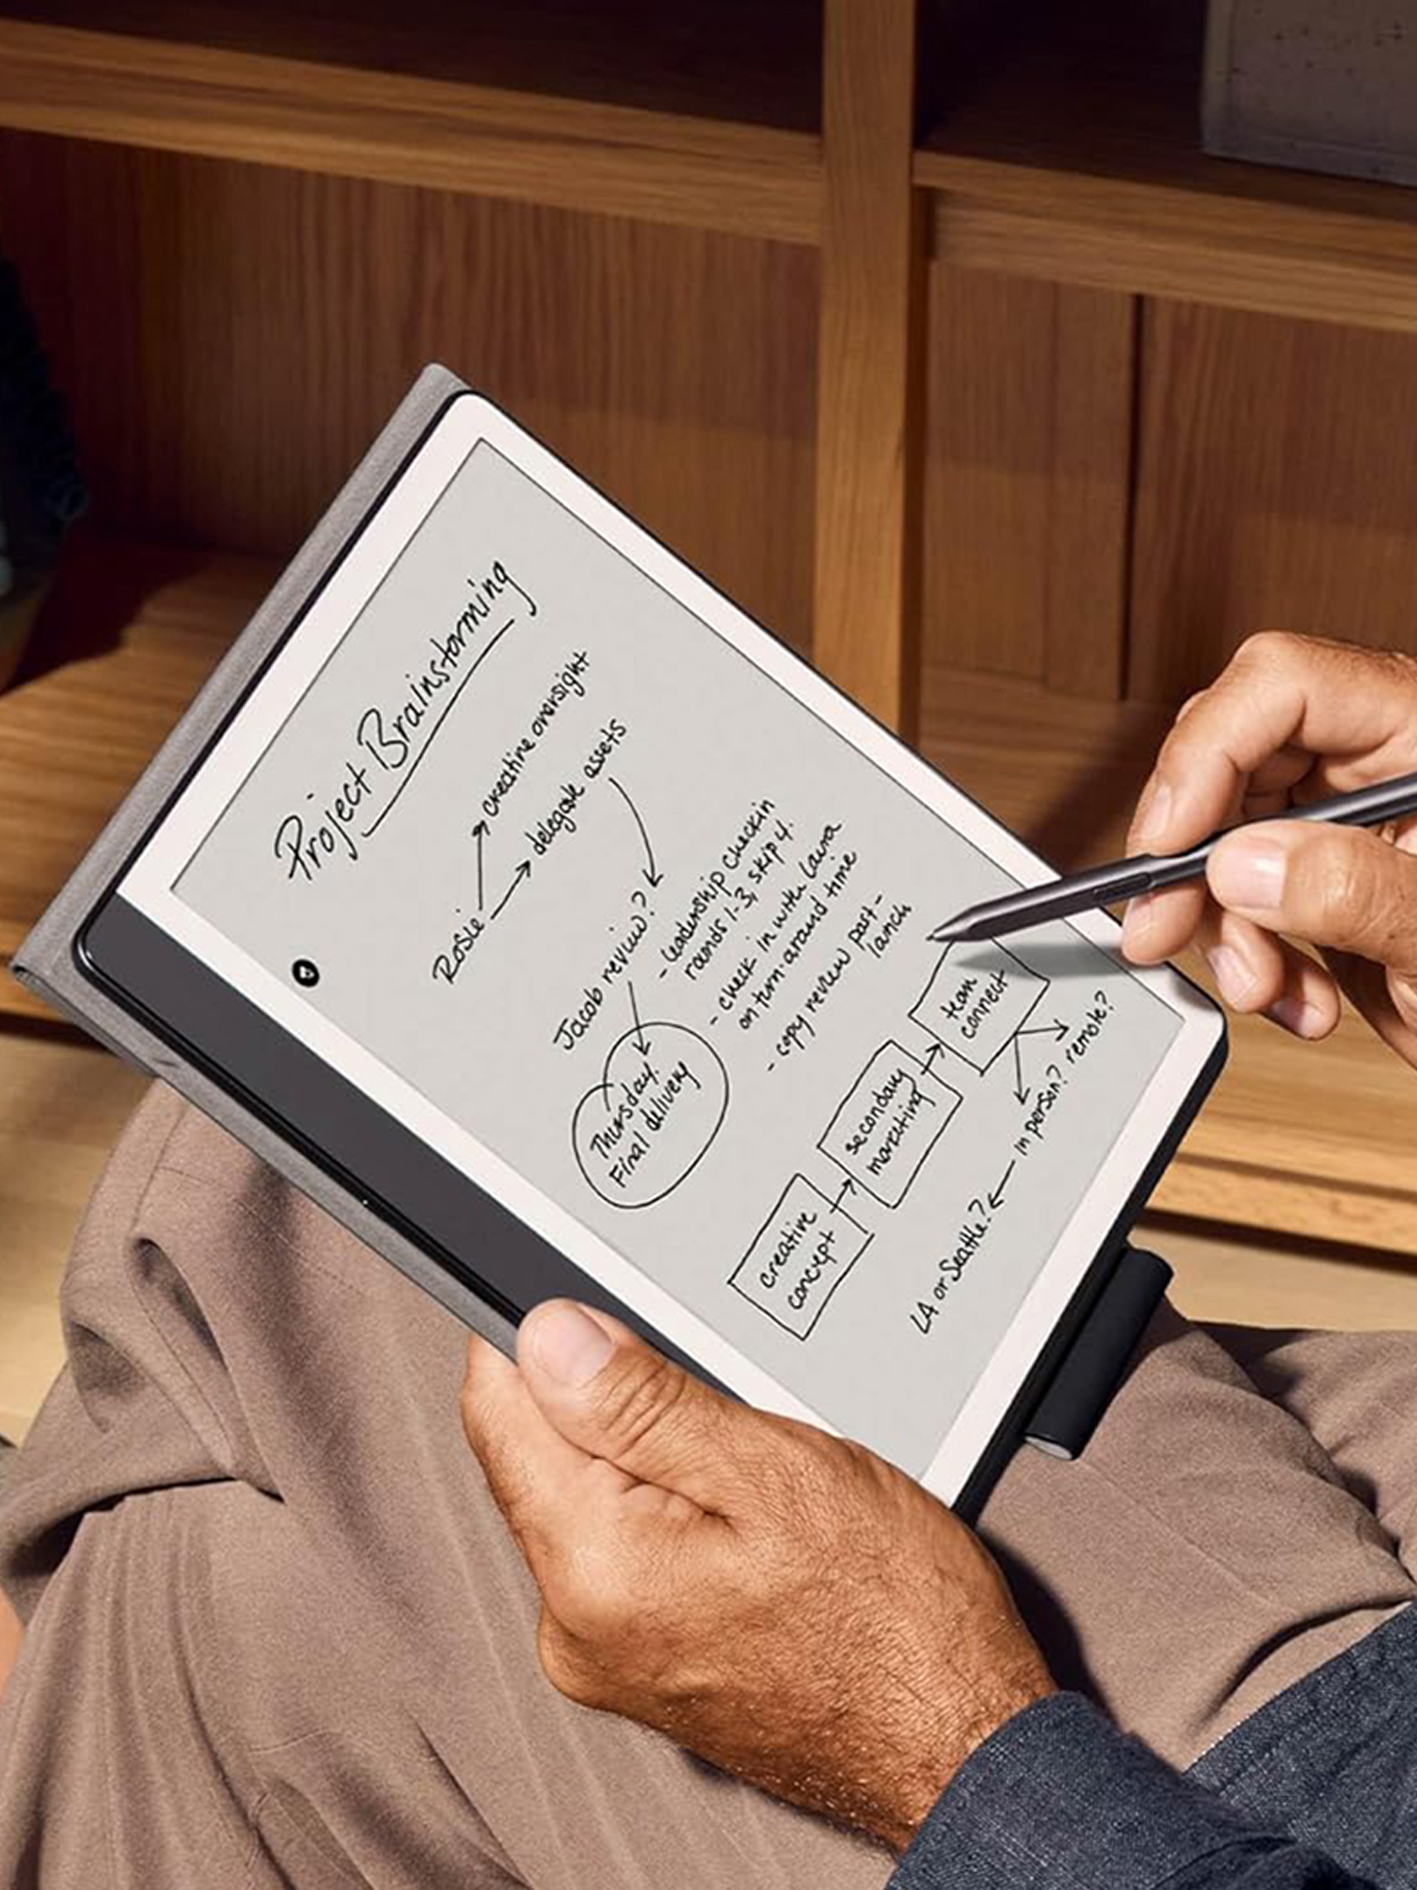 Project Brainstorming
creative oversight
Rosie
delegate assets
Jacob review?
- leadership checkin
rounds 1-3, skip 4.
- check in with Laura
on turn around time
- copy review post-
launch
Thursday.
Final delivery
creative
concept
secondary
marketing
team
connect
in person?
remote?
LA or Seattle?